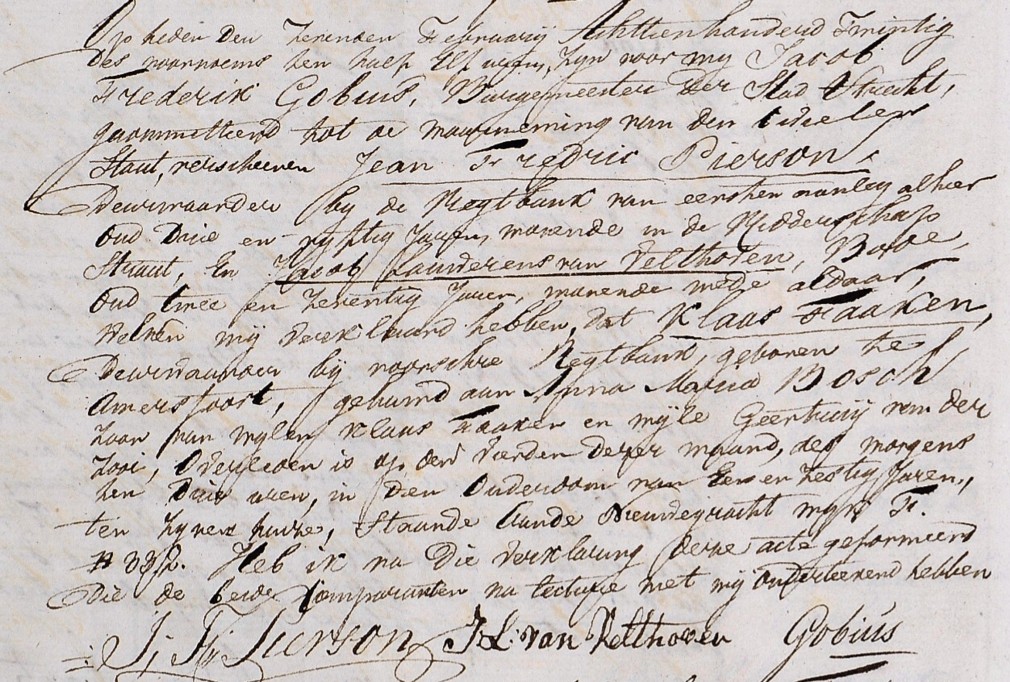 Op heden den Zevenden Februarij Achttienhonderd Twintig
des voormiddags ten half Elf uren, zijn voor mij Jacob
Frederik Gobius, Burgemeester der Stad Utrecht,
gecommitteerd tot de waarneming van den Civielen
Staat, verscheenen Jean Fredric Pierson,
Deurwaarder bij de Regtbank van eersten aanleg alhier
oud Drie en vijftig Jaren, wonende in de Ridderschap
Straat, En Jacob Lauderens van Velthoven, Bode,
oud twee en zeventig Jaren, wonende mede aldaar,
Welken mij verklaard hebben, dat Klaas Faaken,
Deurwaarder bij voorschre Regtbank, geboren te
Amersfoort, gehuwd aan Anna Maria Bosch
Zoon van wijlen Klaas Faaken en wijle Geertruij van der
Zooi, Overleden is op den Vierden dezer maand, des morgens
ten Drie uren, in den Ouderdom van Een en zestig Jaren,
ten zijnen huize, staande aande Nieuwegracht wijk F.
# 332. Heb ik na die verklaring deze acte geformeerd
die de beide Comparanten na lecture met mij onderteekend hebben
J. F. Pierson J.L. van Velthoven Gobius